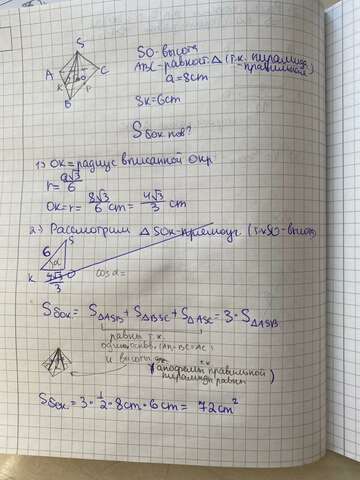 S
A
C
K
O
B
P
SO-высота
ABC-равност. Δ (т.к. пирамида
-правильная)
a=8cm
SK=6cm
Sбок пов?
1) OK=радиус вписанной окр
r=a√3/6
OK=r= 8√3/6 cm= 4√3/3 cm
2) Рассмотрим Δ SOK-прямоуг. (т.к SO-высота)
S
6
α
K
4√3/3
O
cos α=
Sбок= SΔASB+SΔBSC+SΔASC=3·SΔASB
равны т.к.
(AB=BC=AC)
и высоты
т.к
(апофемы правильной
пирамиды равны)
Sбок=3·1/2·8cm·6cm= 72cm²